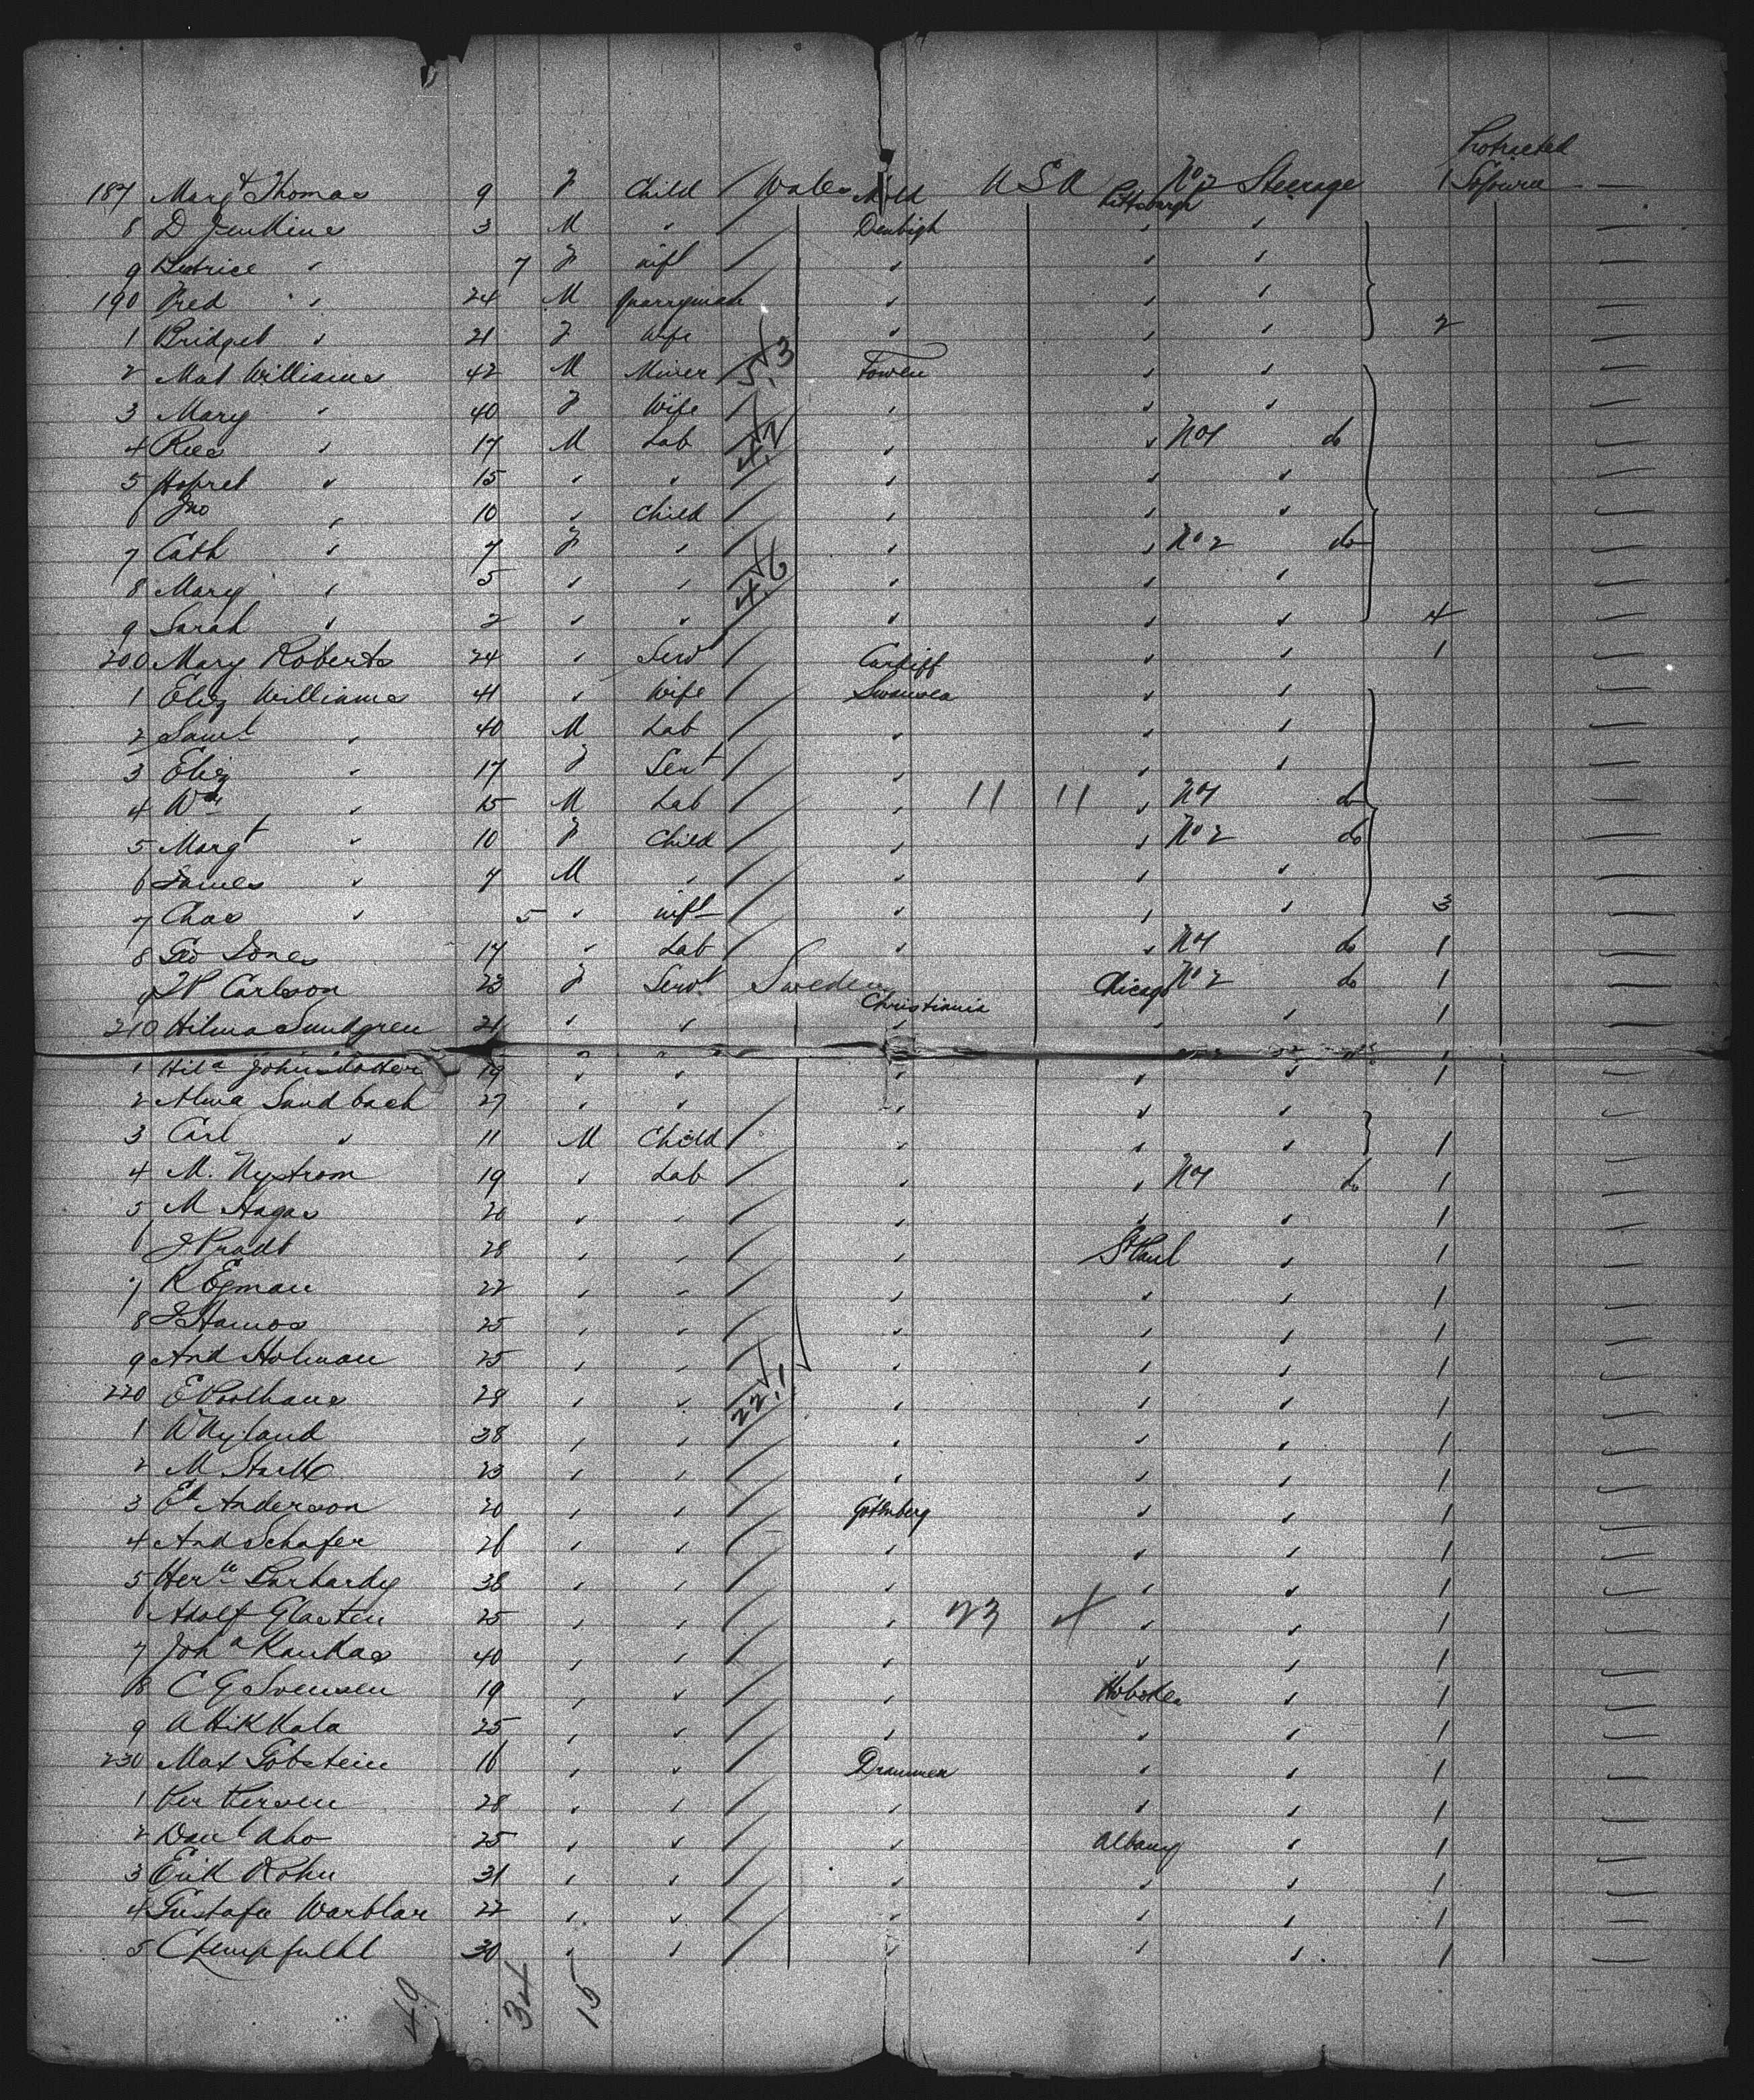 Protracted
187 Margt Thomas 9 F Child / Wales Mold U S A Pittsburgh No 2 Steerage 1 Sojourn —
8 D Jenkins 3 M " / Denbigh " " —
9 " 7 F inft / " " " —
190 Fred " 24 M Quarryman " " " —
1 Bridget " 21 F Wife " " " 2 —
2 Mat Williams 42 M Miner / 5.3 Towen " " —
3 Mary " 40 F Wife / " " " —
4 Rees " 17 M Lab 4.2 " " No 1 do —
5 " 15 " " / " " " —
6 Jno " 10 " Child / " " " —
7 Cath " 7 F " / " " No 2 do —
8 Mary " 5 " " 4.6 " " " —
9 Sarah " 2 " " / " " " 4 —
200 Mary Roberts 24 " Servt / Cardiff " " 1 —
1 Eliz Williams 41 " Wife / Swansea " " —
2 Saml " 40 M Lab / " " " —
3 Eliz " 17 F Sert / " " " —
4 Wm " 15 M Lab / " 11 11 " No 1 do —
5 Margt " 10 F Child / " " No 2 do —
6 James " 7 M " / " " " —
7 Chas " 5 " inft / " " " 3 —
8 Geo Jones 17 " Lab / " " No 1 do 1 —
9 Carlson 23 F Servt Sweden Christiania Chicago No 2 do 1 —
210 Hilma Sundgren 21 " " " " " 1 —
1 Hila 19 " " " " " 1 —
2 Alma Sandbach 27 " " " " " —
3 Carl " 11 M Child / " " " 1 —
4 M. Nystrom 19 " Lab / " " No 1 do 1 —
5 M Hagas 20 " " / " " " 1 —
6 28 " " / " St Paul " 1 —
7 K Egman 22 " " / " " " 1 —
8 25 " " / " " " 1 —
9 And Holman 25 " " / " " " 1 —
220 28 " " 22.1 " " " 1 —
1 W Nyland 38 " " / " " " 1 —
2 M 23 " " / " " " 1 —
3 Anderson 20 " " / Gotenberg " " 1 —
4 And Schafer 26 " " / " " " 1 —
5 38 " " / " " " 1 —
6 Adolf 25 " " / " 23 X " " 1 —
7 Joha 40 " " / " " " 1 —
8 C G Svensen 19 " " / " Hoboken " 1 —
9 A Hikkala 25 " " / " " " 1 —
230 Max 16 " " / Drammen " " 1 —
1 28 " " / " " " 1 —
2 Danl Aho 25 " " / " Albany " 1 —
3 Erik 31 " " / " " " 1 —
4 Gustafu Warblar 22 " " / " " " 1 —
5 30 " " / " " " 1 —
49 34 15